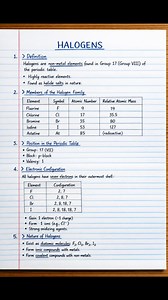 HALOGENS
1. > Definition
Halogens are non-metal elements found in Group 17 (Group VII) of
the periodic table.
• Highly reactive elements
• Found as halide salts in nature.
2. > Members of the Halogen Family
Element Symbol Atomic Number Relative Atomic Mass
Fluorine F 9 19
Chlorine Cl 17 35.5
Bromine Br 35 80
Iodine I 53 127
Astatine At 85 (radioactive)
3. > Position in the Periodic Table
• Group: 17 (VII)
• Block: p-block
• Valency: 1
4. > Electronic Configuration
All halogens have seven electrons in their outermost shell:
Element Configuration
F 2, 7
Cl 2, 8, 7
Br 2, 8, 18, 7
I 2, 8, 18, 18, 7
• Gain 1 electron (-1 charge)
• Form -1 ions (e.g., Cl⁻)
• Strong oxidising agents
5. > Nature of Halogens
• Exist as diatomic molecules: F₂, Cl₂, Br₂, I₂
• Form ionic compounds with metals
• Form covalent compounds with non-metals